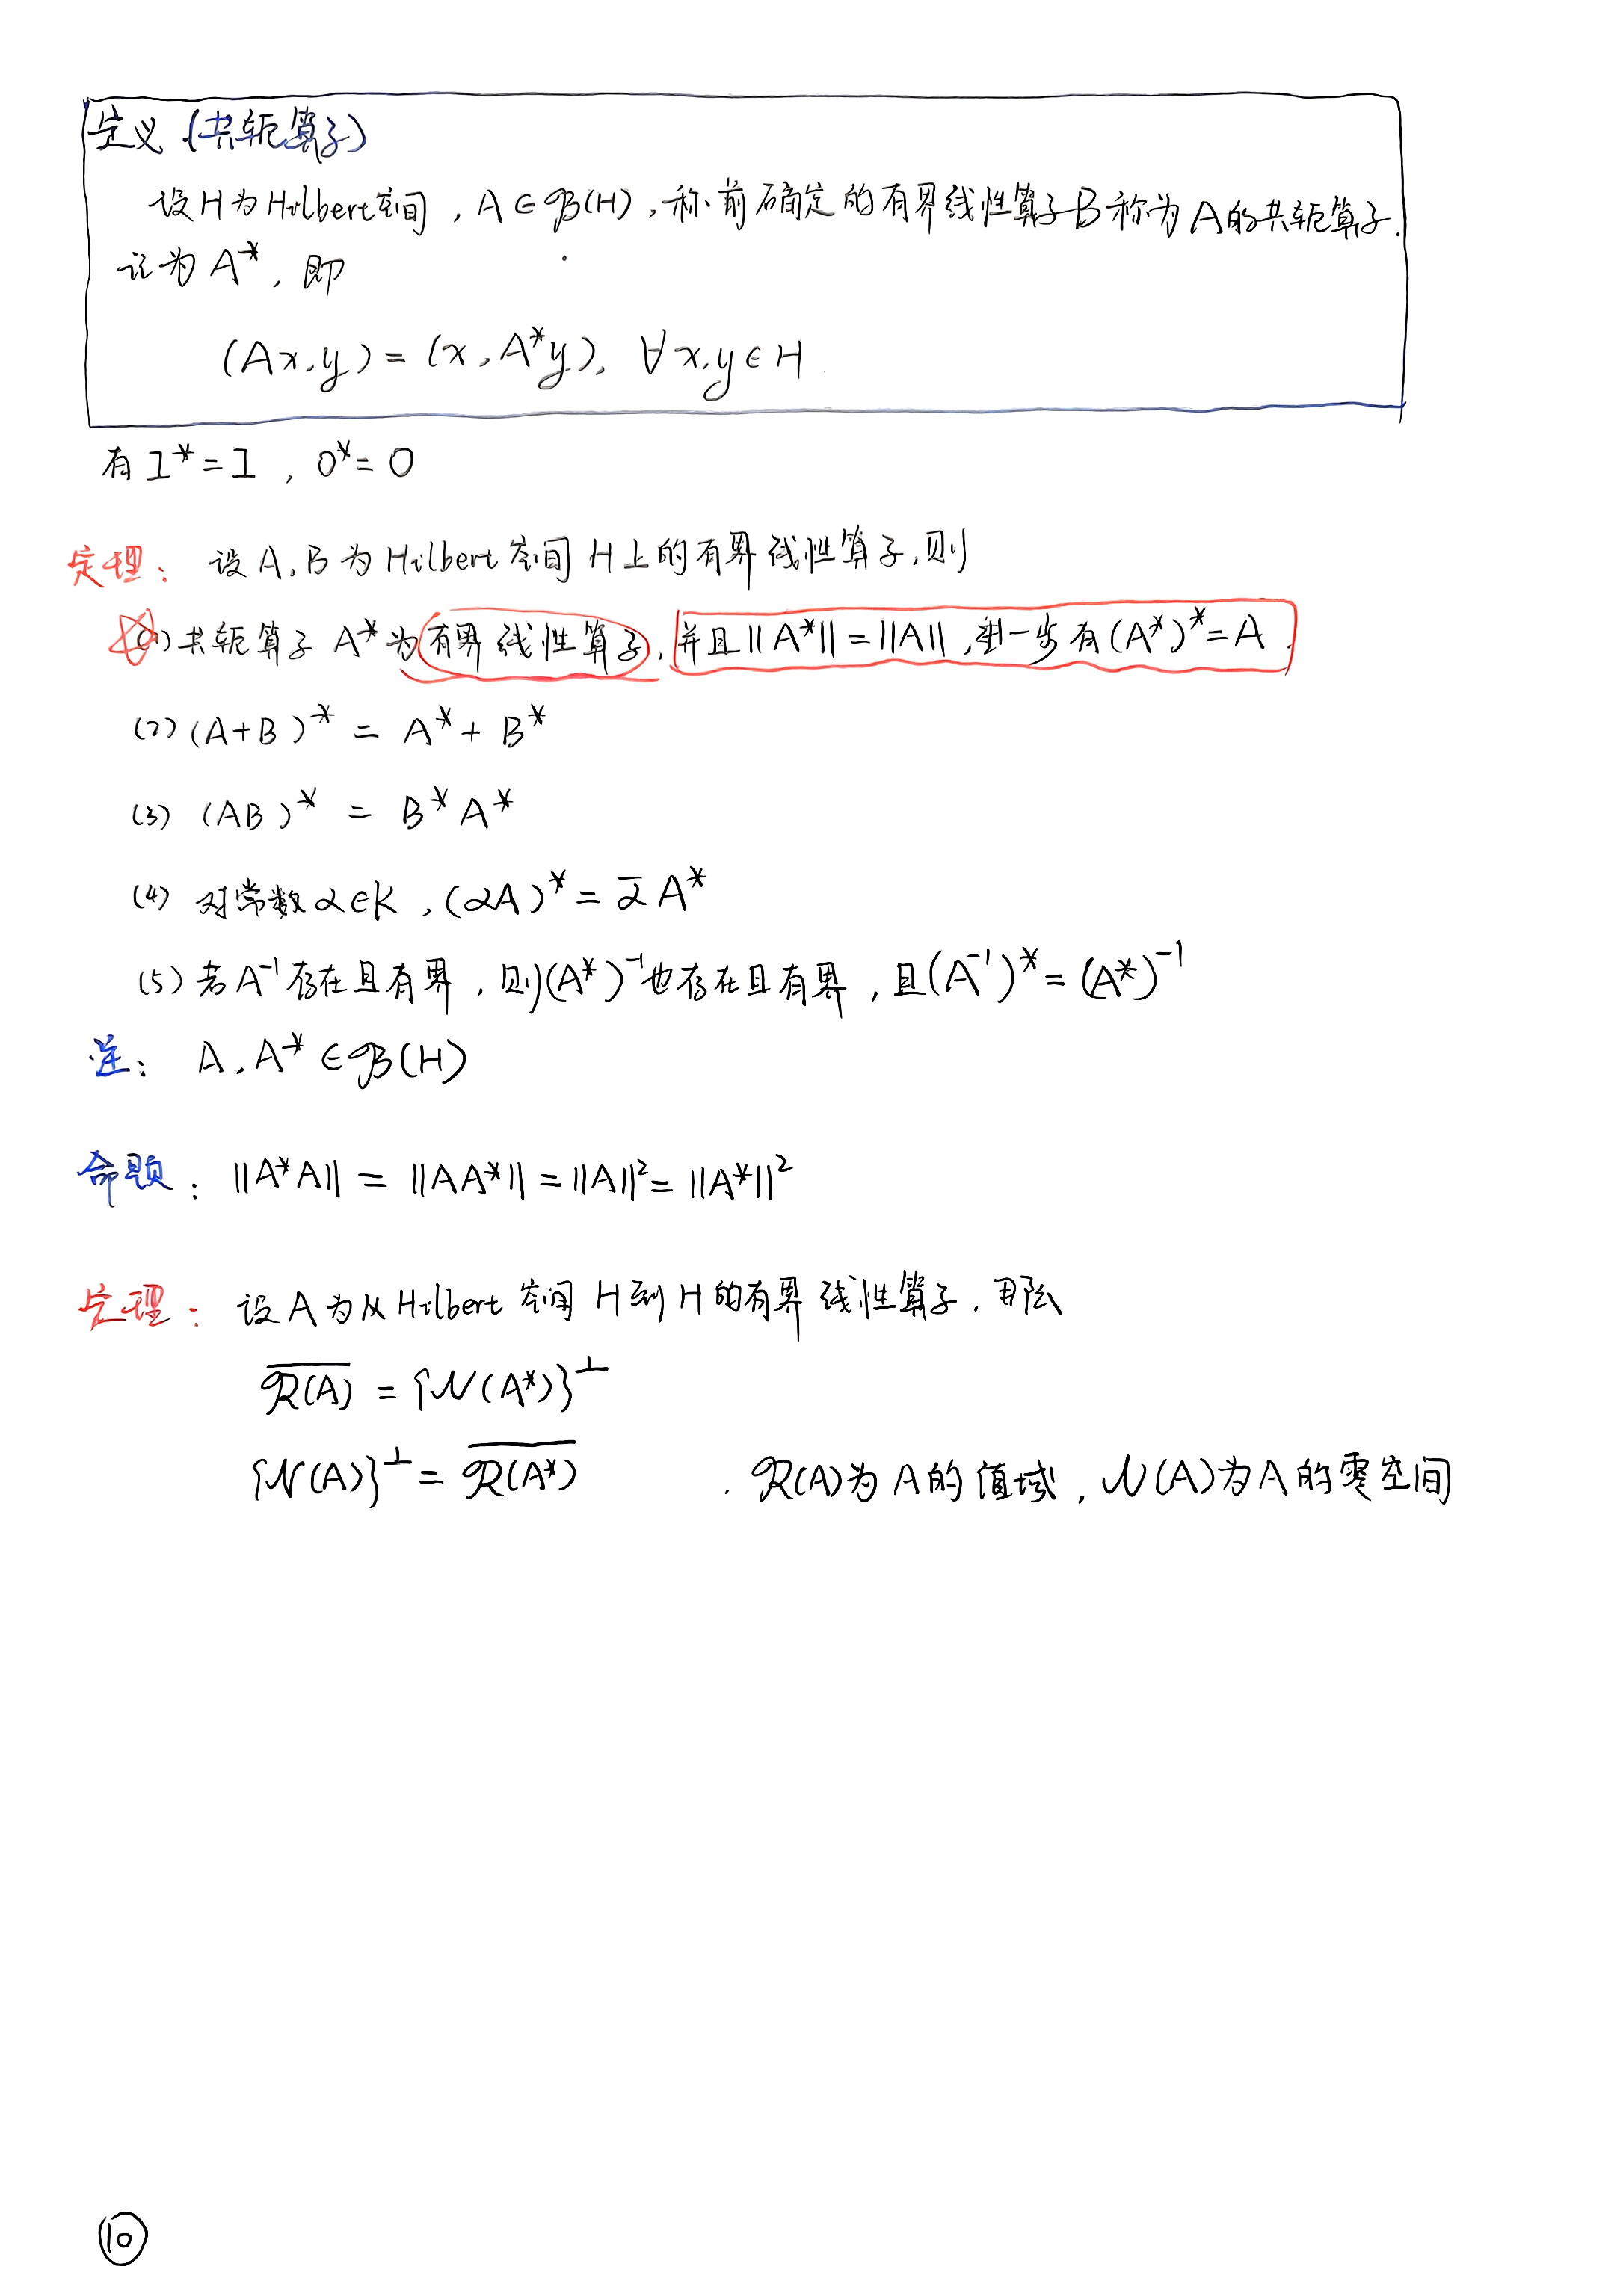 定义.(共轭算子)
设H为Hilbert空间, A∈ℬ(H), 称前确定的有界线性算子B称为A的共轭算子.
记为A*, 即
(Ax,y)=(x,A*y), ∀x,y∈H
有 I*=I , 0*=0
定理: 设A,B为Hilbert空间H上的有界线性算子,则
(1) 共轭算子 A*为有界线性算子, 并且||A*||=||A||,进一步有(A*)*=A.
(2) (A+B)* = A*+B*
(3) (AB)* = B*A*
(4) 对常数α∈K, (αA)*=ᾱA*
(5) 若A⁻¹存在且有界, 则(A*)⁻¹也存在且有界, 且(A⁻¹)*=(A*)⁻¹
注: A,A*∈ℬ(H)
命题: ||A*A|| = ||AA*||=||A||²=||A*||²
定理: 设A为从Hilbert空间H到H的有界线性算子, 那么
$\overline{ℛ(A)}$ = {𝒩(A*)}^⊥
{𝒩(A)}^⊥ = $\overline{ℛ(A*)}$ . ℛ(A)为A的值域, 𝒩(A)为A的零空间
⑩